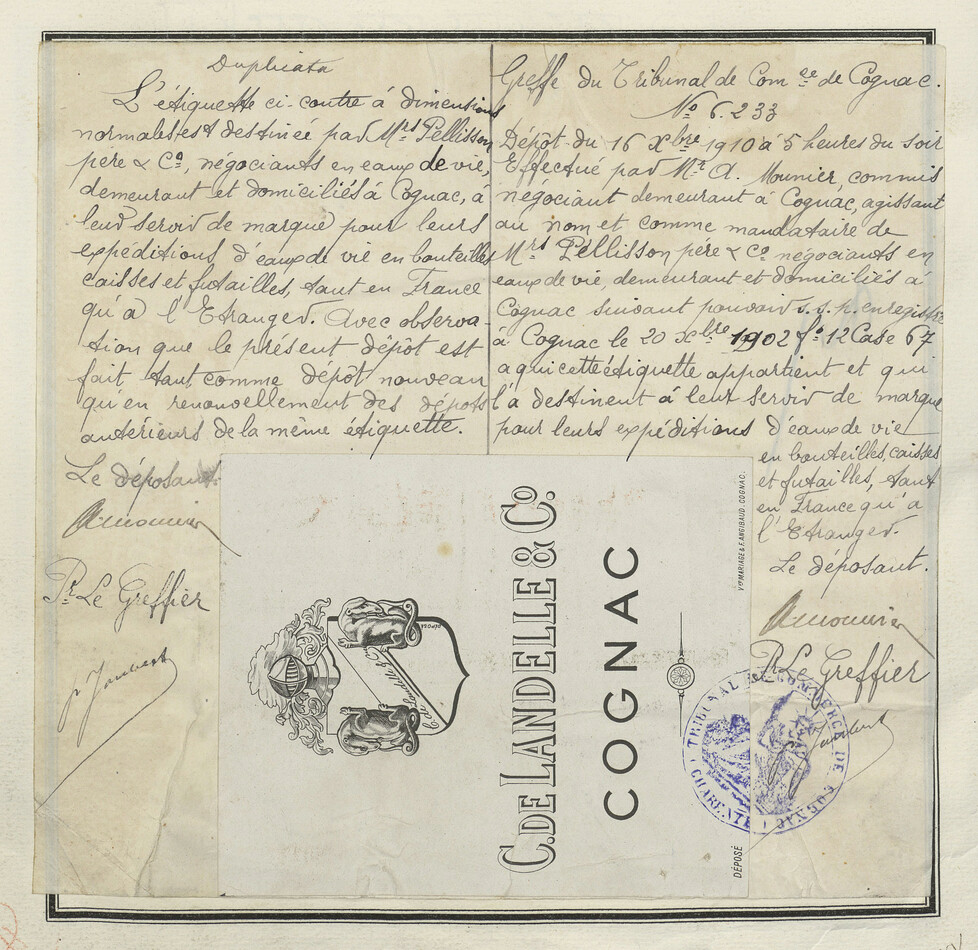 Duplicata
L'étiquette ci-contre à dimensions
normales est destinée par Mrs Pellisson
père & Co, négociants en eaux de vie,
demeurant et domiciliés à Cognac, à
leur servir de marque pour leurs
expéditions d'eaux de vie en bouteilles
caisses et futailles, tant en France
qu'à l'Etranger. Avec observa-
tion que le présent dépôt est
fait tant comme dépôt nouveau
qu'en renouvellement des dépôts
antérieurs de la même étiquette.
Le déposant.
Amounier
Pr Le Greffier
p Jaubert
Greffe du Tribunal de Comce de Cognac.
No 6.233
Dépôt du 16 Xbre 1910 à 5 heures du soir
Effectué par Mr A. Mounier, commis
négociant demeurant à Cognac, agissant
au nom et comme mandataire de
Mrs Pellisson père & Co négociants en
eaux de vie, demeurant et domiciliés à
Cognac suivant pouvoir s.s.p. enregistré
à Cognac le 20 Xbre 1902 fo 12 Case 67
a qui cette étiquette appartient et qui
l'a destinent à leur servir de marque
pour leurs expéditions d'eaux de vie
en bouteilles, caisses
et futailles, tant
en France qu'à
l'Etranger.
Le déposant.
Amounier
Pr Le Greffier
Jaubert
C. DE LANDELLE & Co.
COGNAC
C. de Landelle & Co
DÉPOSÉ
DÉPOSÉ
Vve MARIAGE & F. ANGIBAUD, COGNAC.
TRIBUNAL DE COMMERCE DE COGNAC
(CHARENTE)